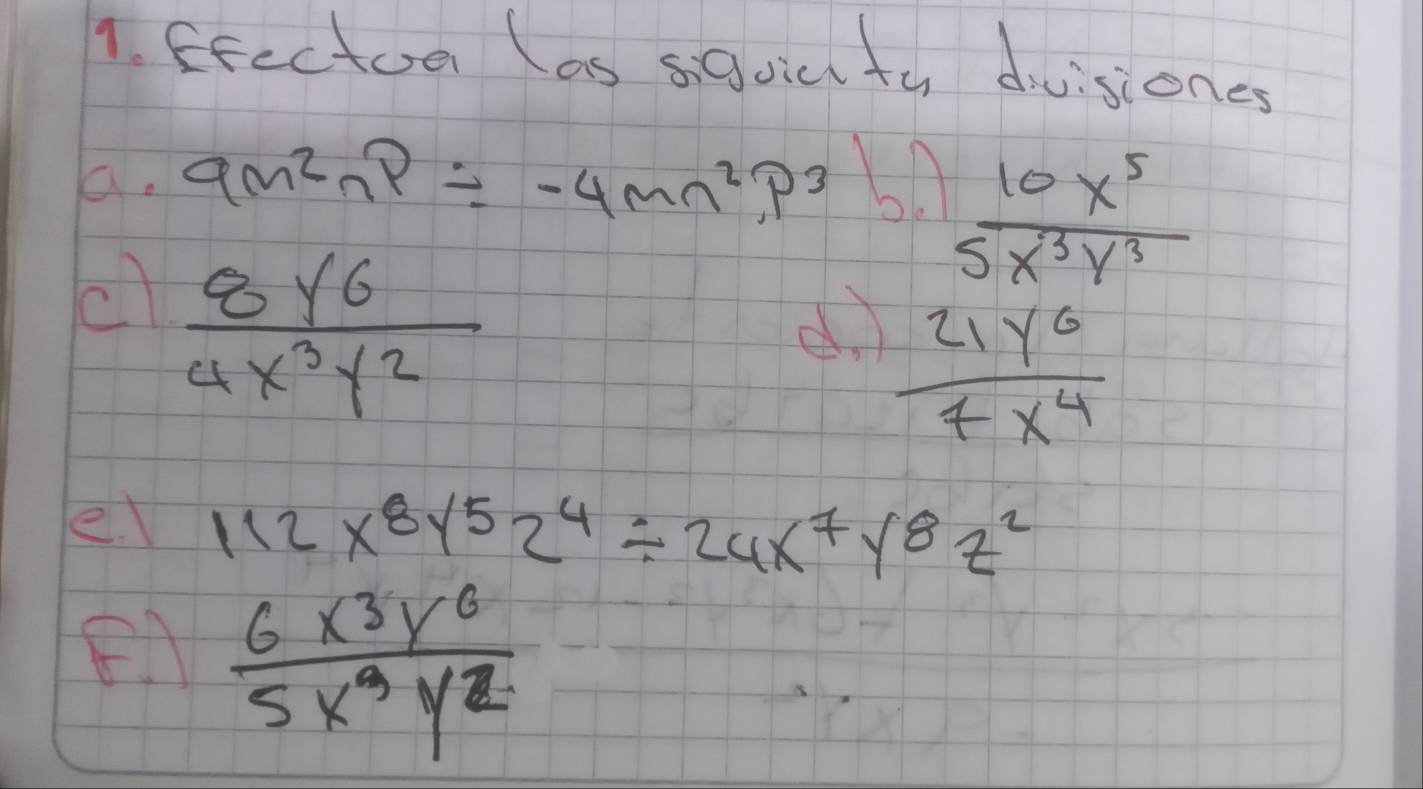 1. Efectua las siguientes divisiones
a. 9m²nP ÷ -4mn²P³ b.) 10x⁵ / 5x³y³
c) 8y6 / 4x³y² d.) 21y⁶ / 7x⁴
e.) 112x⁸y⁵z⁴ ÷ 24x⁷y⁸z²
F.) 6x³y⁶ / 5x³y²